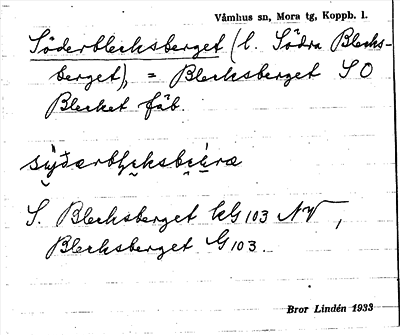 Våmhus sn, Mora tg, Koppb. l.
Söderblecksberget (l. Södra Blecks-
berget), = Blecksberget SO
Blecket fäb.
S. Blecksberget kG 103 NV,
Blecksberget G 103.
Bror Lindén 1933